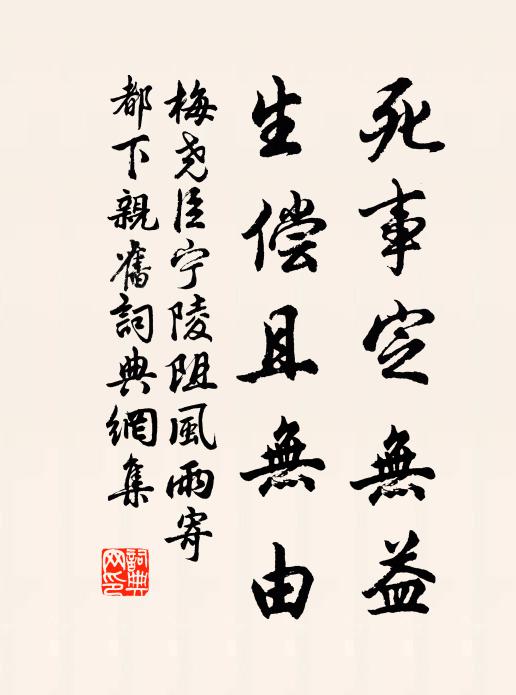 死事定無益
生償且無由
梅尧臣宁陵阻風雨寄
都下親舊詞典網集
詞典网印